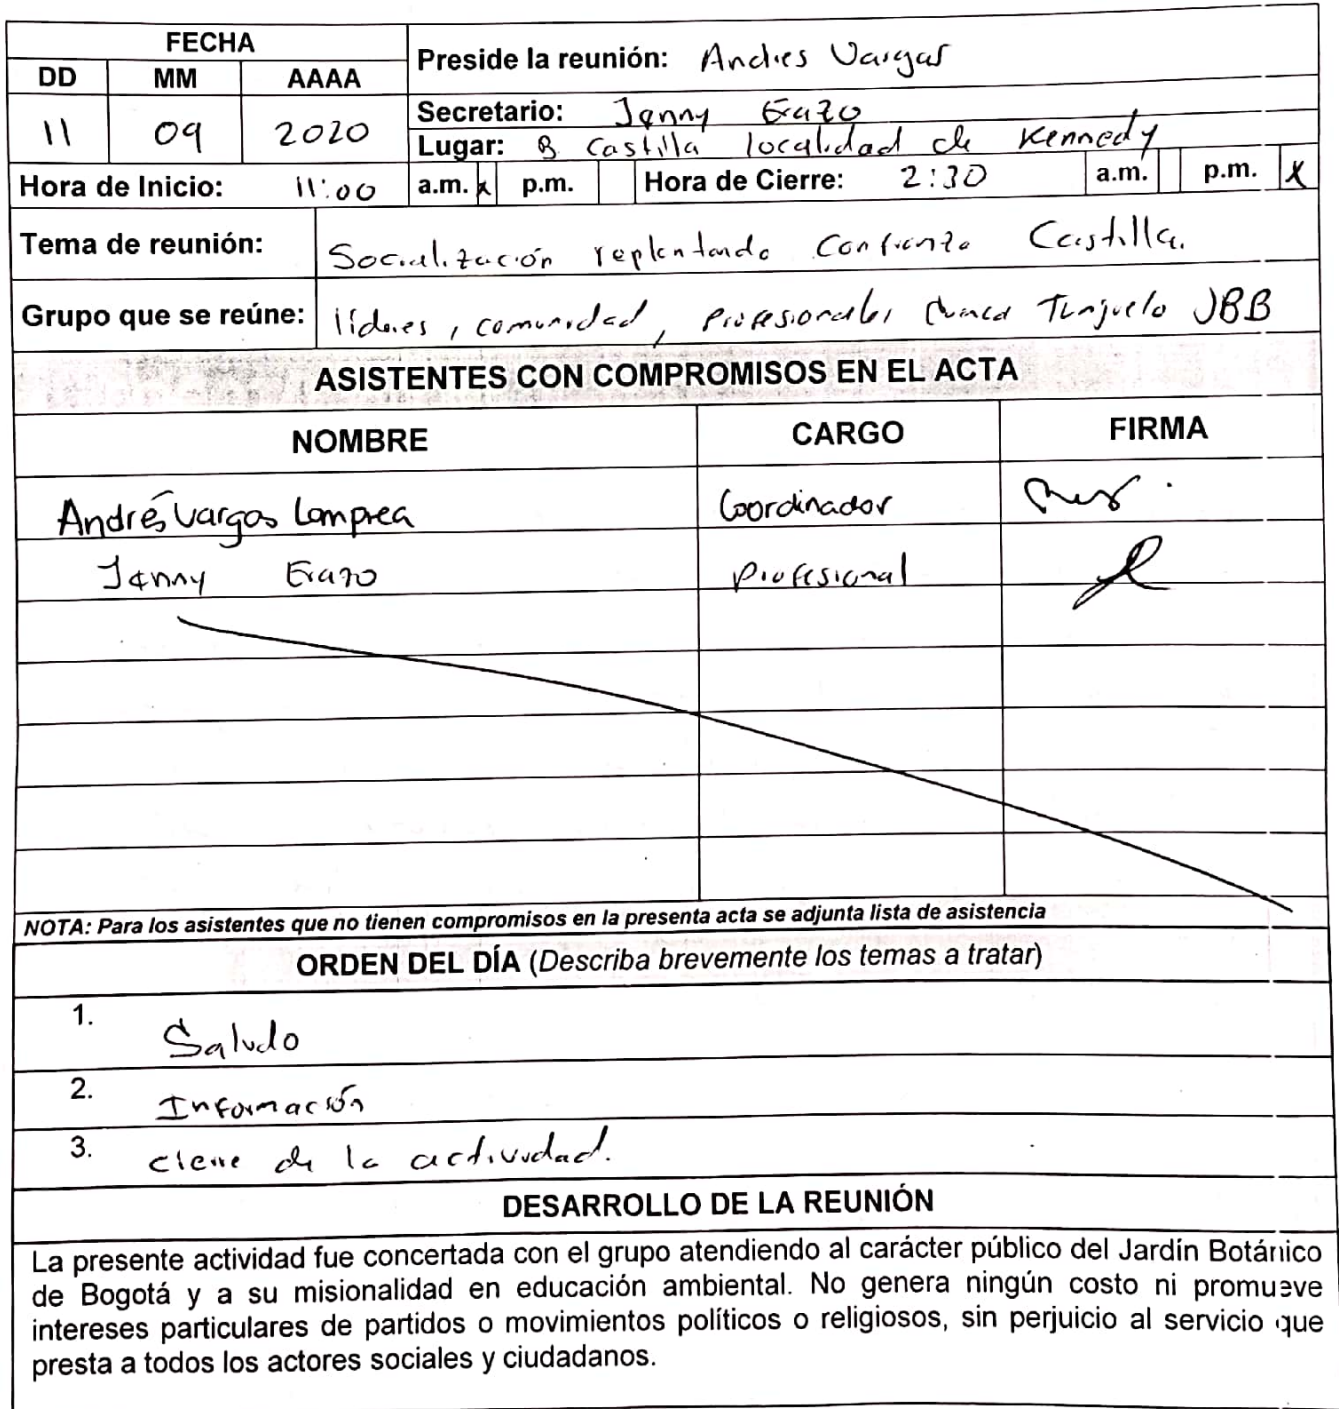 FECHA
DD MM AAAA
11 09 2020
Preside la reunión: Andres Vargas
Secretario: Jenny Erazo
Lugar: B Castilla localidad de Kennedy
Hora de Inicio: 11:00 a.m. x p.m. Hora de Cierre: 2:30 a.m. p.m. x
Tema de reunión: Socialización replantando Confianza Castilla.
Grupo que se reúne: líderes, comunidad, profesionales Cuenca Tunjuelo JBB
ASISTENTES CON COMPROMISOS EN EL ACTA
NOMBRE CARGO FIRMA
Andrés Vargas Lamprea Coordinador
Jenny Erazo Profesional
NOTA: Para los asistentes que no tienen compromisos en la presenta acta se adjunta lista de asistencia
ORDEN DEL DÍA (Describa brevemente los temas a tratar)
1. Saludo
2. Información
3. cierre de la actividad.
DESARROLLO DE LA REUNIÓN
La presente actividad fue concertada con el grupo atendiendo al carácter público del Jardín Botánico
de Bogotá y a su misionalidad en educación ambiental. No genera ningún costo ni promueve
intereses particulares de partidos o movimientos políticos o religiosos, sin perjuicio al servicio que
presta a todos los actores sociales y ciudadanos.